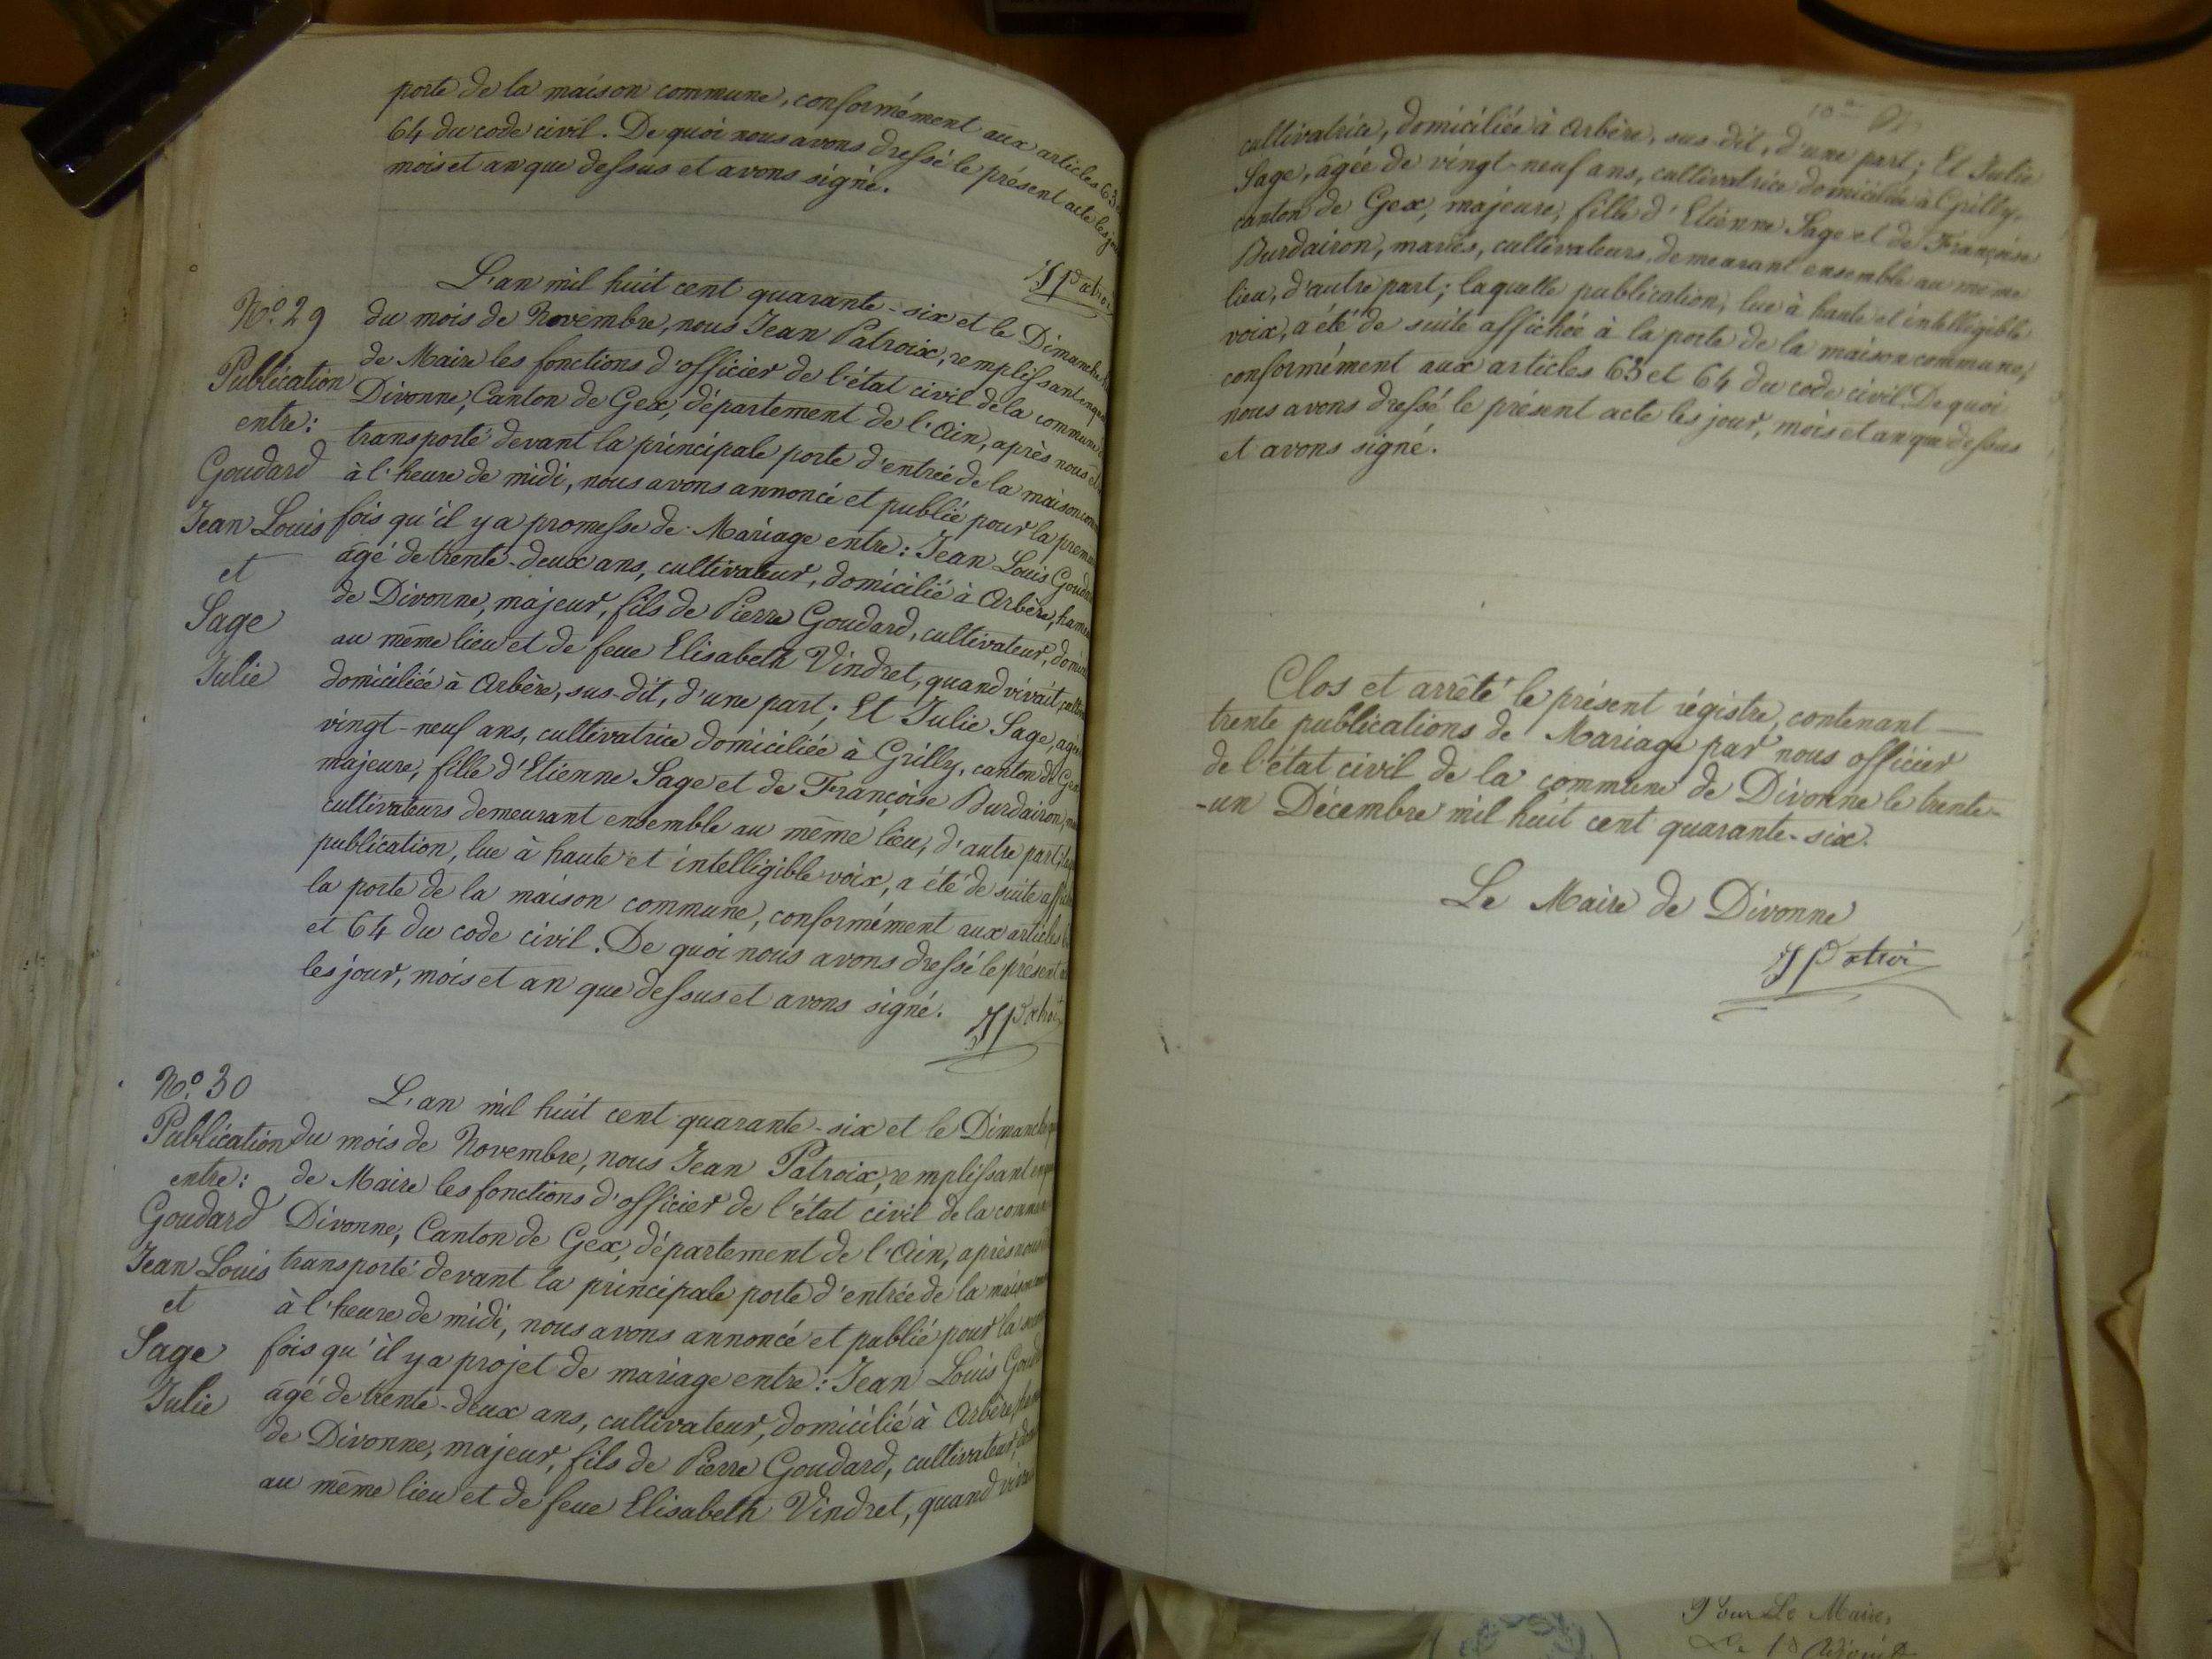 porte de la maison commune, conformément aux articles 63
64 du code civil. De quoi nous avons dressé le présent acte les jour
mois et an que dessus et avons signé.
JPatroi
N.o 29
Publication
entre:
Goudard
Jean Louis
et
Sage
Julie
L'an mil huit cent quarante-six et le Dimanche
du mois de Novembre, nous Jean Patroix, remplissant en qua
de Maire les fonctions d'officier de l'état civil de la commune
Divonne, Canton de Gex, département de l'Ain, après nous
transporté devant la principale porte d'entrée de la maison com
à l'heure de midi, nous avons annoncé et publié pour la prem
fois qu'il y a promesse de Mariage entre: Jean Louis Goudar
âgé de trente-deux ans, cultivateur, domicilié à Arbère, hame
de Divonne, majeur, fils de Pierre Goudard, cultivateur, domi
au même lieu et de feue Elisabeth Vindret, quand vivait, culti
domiciliée à Arbère, sus-dit, d'une part; Et Julie Sage, agé
vingt-neuf ans, cultivatrice domiciliée à Grilly, canton de Gex
majeure, fille d'Etienne Sage et de Françoise Burdairon, ma
cultivateurs demeurant ensemble au même lieu, d'autre part;
publication, lue à haute et intelligible voix, a été de suite affi
la porte de la maison commune, conformément aux articles
et 64 du code civil. De quoi nous avons dressé le présent
les jour, mois et an que dessus et avons signé.
JPatroi
N.o 30
Publication
entre:
Goudard
Jean Louis
et
Sage
Julie
L'an mil huit cent quarante-six et le Dimanche
du mois de Novembre, nous Jean Patroix, remplissant en qua
de Maire les fonctions d'officier de l'état civil de la commun
Divonne, Canton de Gex, département de l'Ain, après nous
transporté devant la principale porte d'entrée de la maison
à l'heure de midi, nous avons annoncé et publié pour la
fois qu'il y a projet de mariage entre: Jean Louis Goud
âgé de trente-deux ans, cultivateur, domicilié à Arbère, ham
de Divonne, majeur, fils de Pierre Goudard, cultivateur, dom
au même lieu et de feue Elisabeth Vindret, quand viva
cultivatrice, domiciliée à Arbère, sus-dit, d'une part; Et Julie
Sage, agée de vingt-neuf ans, cultivatrice domiciliée à Grilly,
canton de Gex, majeure, fille d'Etienne Sage et de Françoise
Burdairon, mariés, cultivateurs demeurant ensemble au même
lieu, d'autre part; laquelle publication, lue à haute et intelligible
voix, a été de suite affichée à la porte de la maison commune,
conformément aux articles 63 et 64 du code civil. De quoi
nous avons dressé le présent acte les jour, mois et an que dessus
et avons signé.
Clos et arrêté le présent régistre, contenant
trente publications de Mariage par nous officier
de l'état civil de la commune de Divonne le trente-
-un Décembre mil huit cent quarante-six.
Le Maire de Divonne
JPatroi
Pour Le Maire,